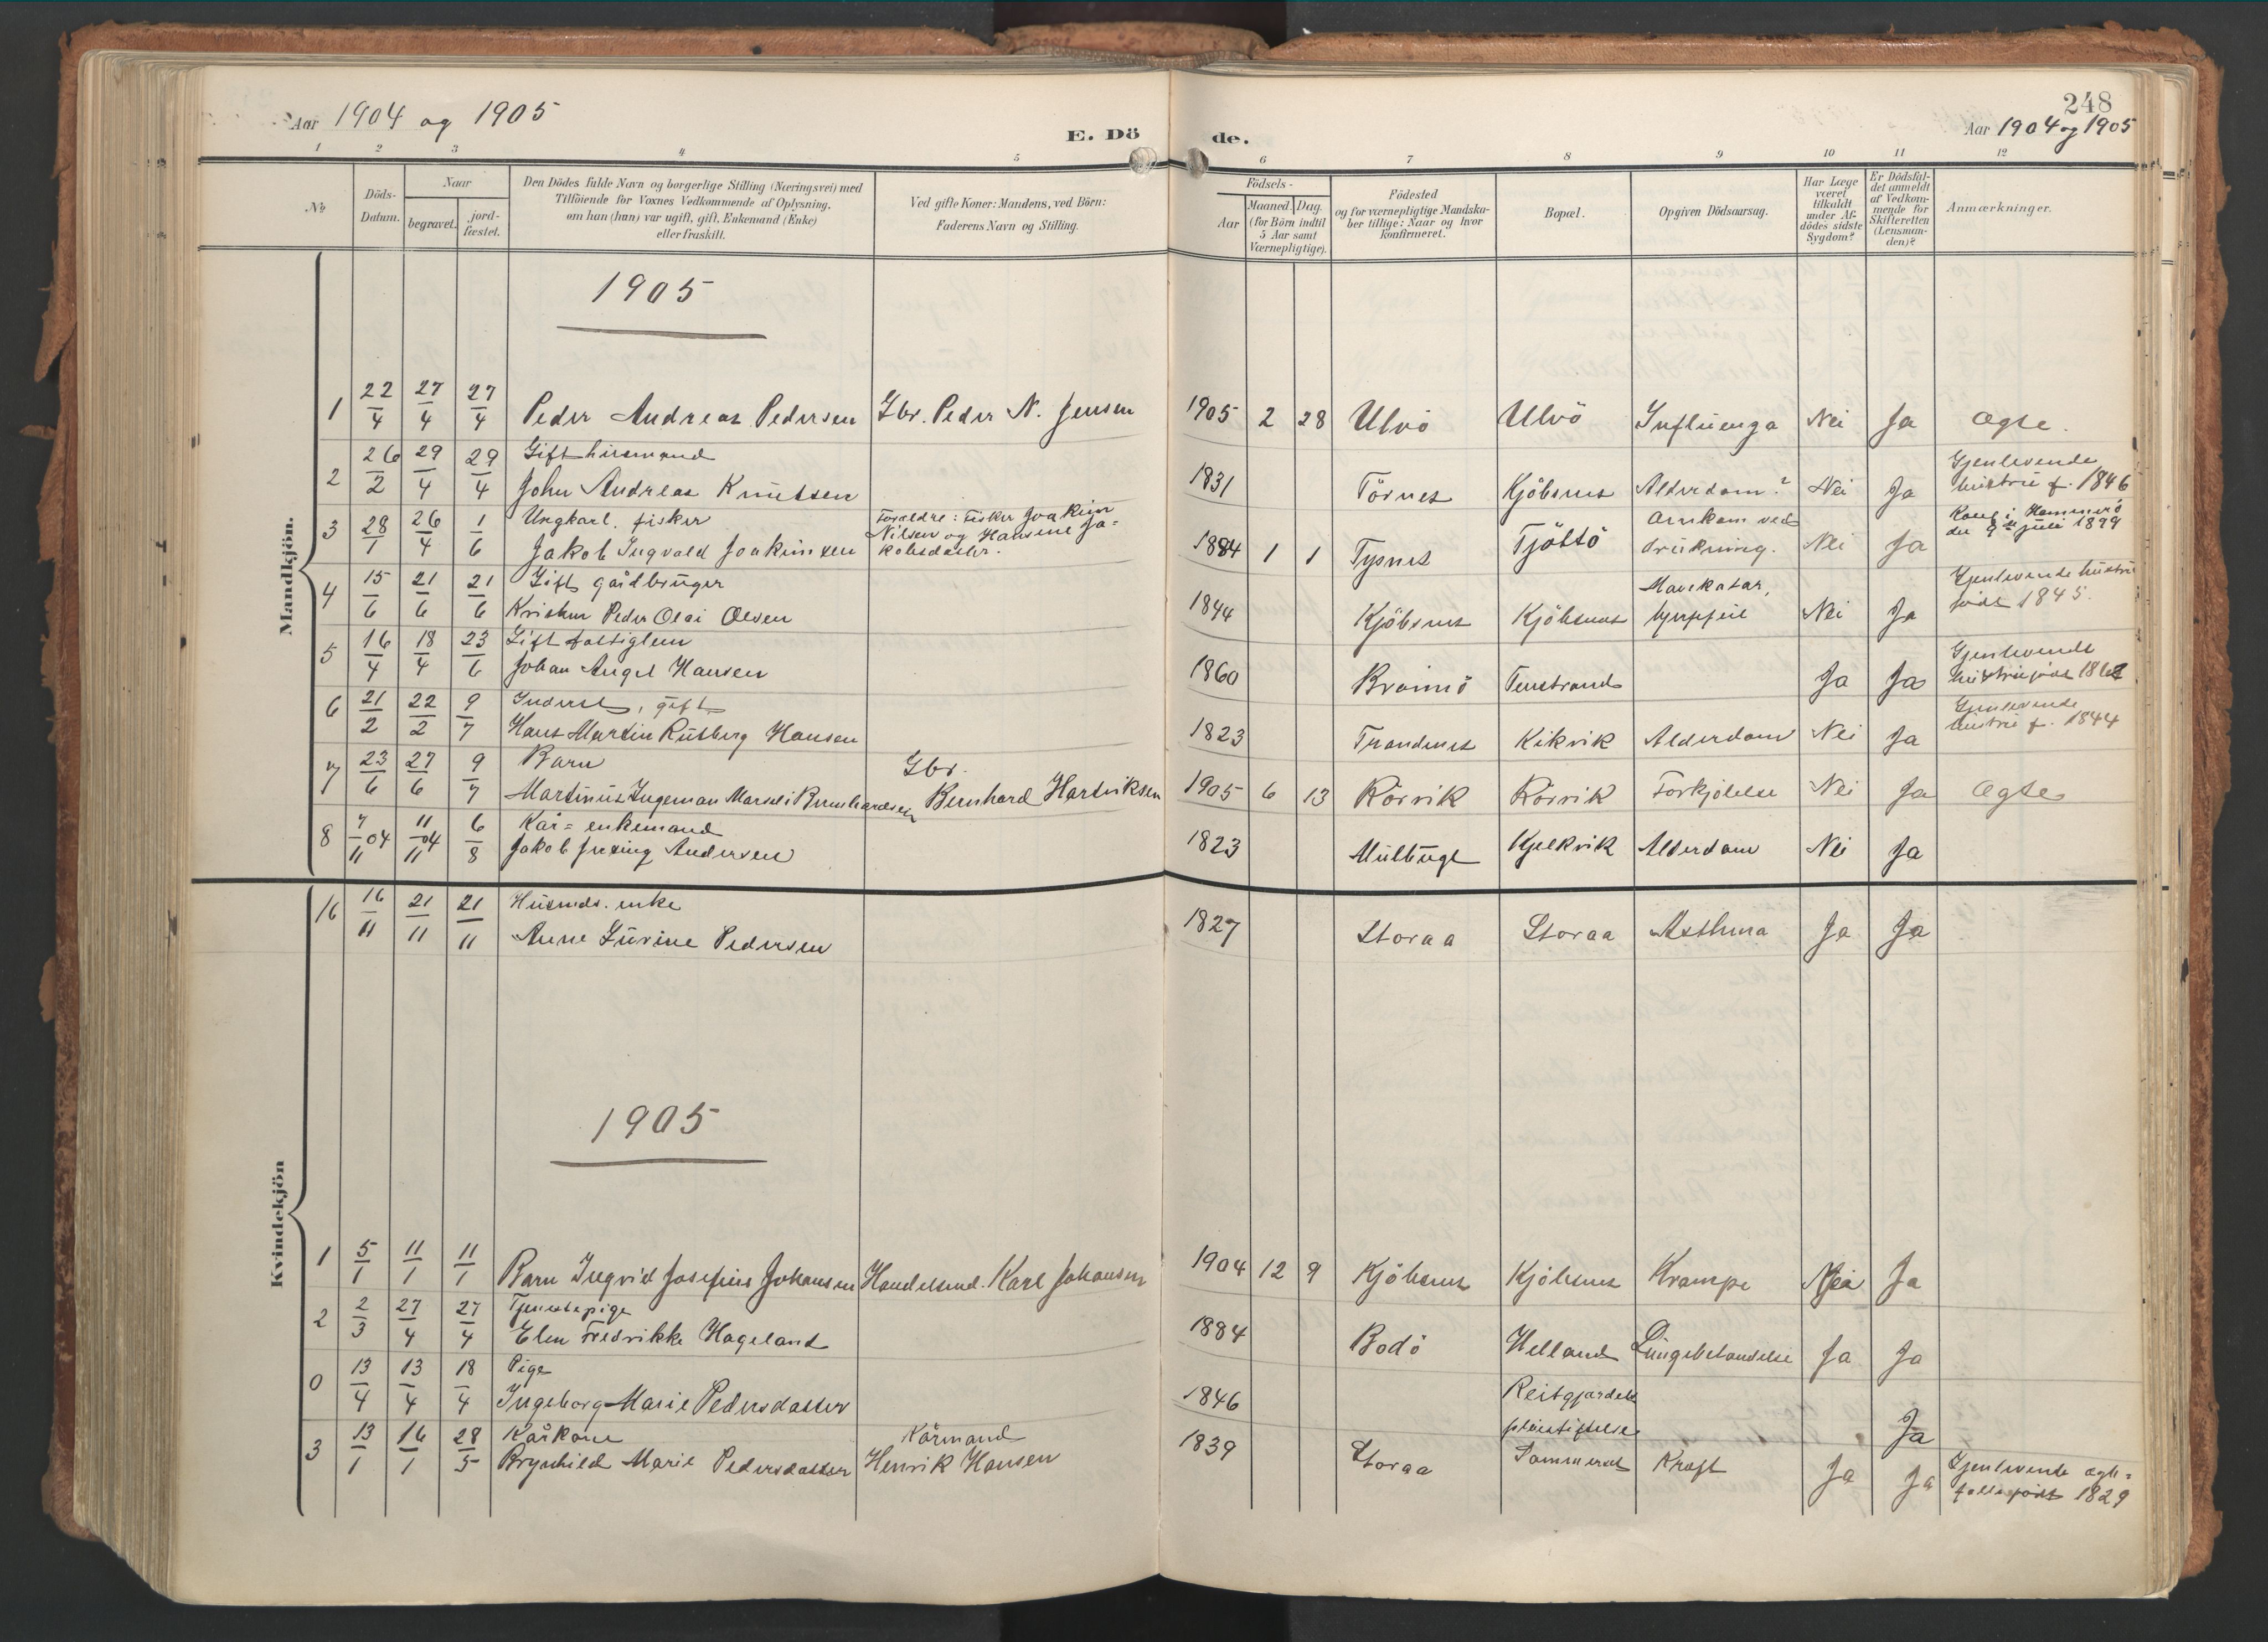 Aar 1904 og 1905
E. Dö
de.
248
Aar 1904 og 1905
1 2 3 4 5 6 7 8 9 10 11 12
No
Döds-Datum.
Naar
begravet.
jord-fæstet.
Den Dödes fulde Navn og borgerlige Stilling (Næringsvei) med
Tilföiende for Voxnes Vedkommende af Oplysning,
om han (hun) var ugift, gift, Enkemand (Enke)
eller fraskilt.
Ved gifte Koner: Mandens, ved Börn:
Faderens Navn og Stilling.
Födsels-
Aar
Maaned. Dag.
(for Börn indtil
5 Aar samt
Værnepligtige).
Födested
og for værnepligtige Mandska-
ber tillige: Naar og hvor
konfirmeret.
Bopæl.
Opgiven Dödsaarsag.
Har Læge
været
tilkaldt
under Af-
dödes sidste
Sygdom?
Er Dödsfal-
det anmeldt
af Vedkom-
mende for
Skifteretten
(Lensman-
den)?
Anmærkninger.
Mandkjön.
1905
1 22/4 27/4 27/4 Peder Andreas Pedersen Gbr. Peder N. Jensen 1905 2 28 Ulvö Ulvö Influenza Nei Ja Ægte.
2 26/2 29/4 29/4 Gift husmand
John Andreas Knutsen 1831 Törnes Kjöbsnes Alderdom? Nei Ja Gjenlevende
hustru f. 1846
3 28/1 26/4 1/6 Ungkarl. fisker
Jakob Ingvald Joakimsen
Forældre: Fisker Joakim
Nilsen og Hansine Ja-
kobsdatter.
1884 1 1 Tysnes Tjöttö
Omkom ved
drukning. Nei Ja
Konf. i Hammerö
den 9de juli 1899
4 15/6 21/6 21/6 Gift gårdbruger
Kristen Peder Olai Olsen 1844 Kjöbsnes Kjöbsnes
Mavekatar,
Nei Ja Gjenlevende hustru
födt 1845.
5 16/4 18/4 23/6 Gift fattiglem
Johan Angel Hansen 1860 Brönnö Ja Ja Gjenlevende
hustru födt
6 21/2 22/2 9/7 Inderst, gift
Hans Martin Rutberg Hansen 1823 Trondenes Kikvik Alderdom Nei Ja Gjenlevende
hustru f. 1844
7 23/6 27/6 9/7 Barn
Martinus Ingeman Marseli Bernhardsen
Gbr.
Bernhard Hartviksen 1905 6 13 Rörvik Rörvik Forkjölelse Nei Ja Ægte
8 7/11 04 11/11 04 6/8 Kår= enkemand
Jakob Andersen 1823 Kjelkvik Alderdom Nei Ja
Kvindekjön
16 16/11 21/11 21/11 Husmds. enke
Anne Gurine Pedersen 1827 Storaa Storaa Asthma Ja Ja
1905
1 5/1 11/1 11/1 Barn Ingvid Josefine Johansen Handelsmd. Karl Johansen 1904 12 9 Kjöbsnes Kjöbsnes Krampe Nei Ja
2 2/3 27/4 27/4 Tjenestepige
Elen Fredrikke Hageland 1884 Bodö Helland Lungebetændelse Ja Ja
0 13/4 13/4 18/4 Pige
Ingeborg Marie Pedersdatter 1846 Reitgjærdets
pleiestiftelse Ja
3 13/1 16/1 28/5 Kårkone
Brynhild Marie Pedersdatter
Kårmand
Henrik Hansen 1839 Storaa Tommeraas Kræft Ja Ja
Gjenlevende ægte=
fælle födt 1829